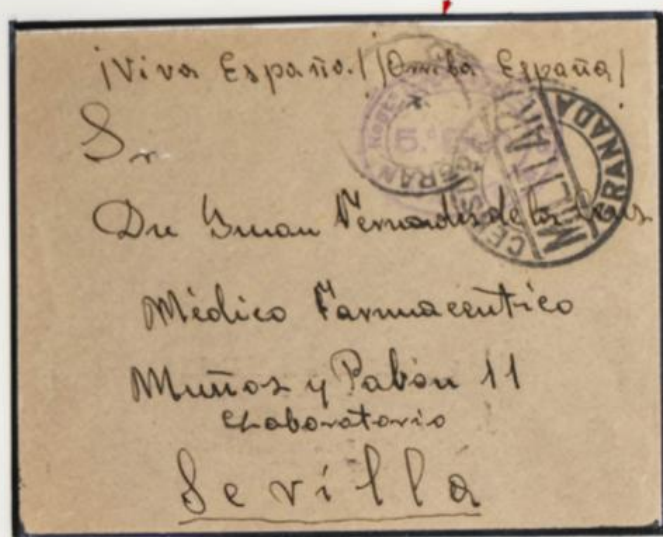 ¡Viva España! ¡Arriba España!
Sr
Dn Juan Fernandez de la Cruz
Médico Farmaceutico
Muñoz y Pabón 11
Laboratorio
Sevilla
CENSURA MILITAR
GRANADA